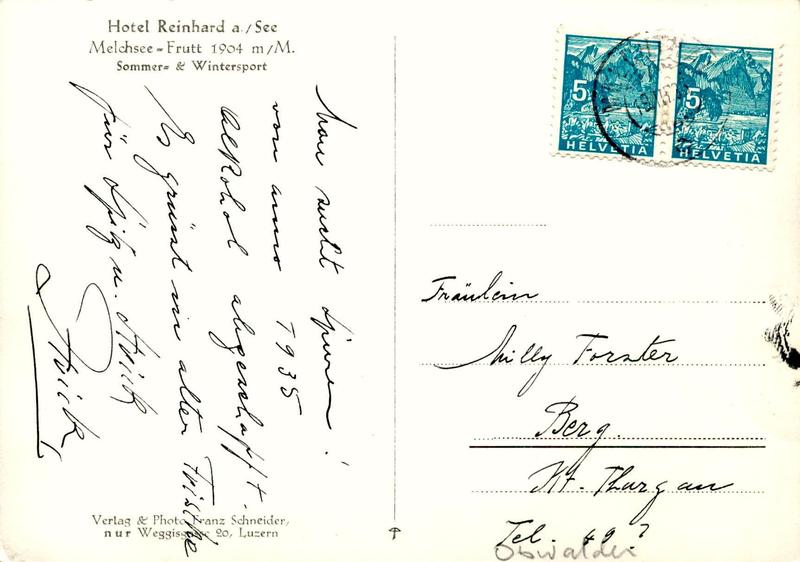 Hotel Reinhard a./See
Melchsee-Frutt 1904 m/M.
Sommer- & Wintersport
Man sucht Spuren!
von anno 1935
Alkohol abgeschafft.
Es grüsst in alter Frische
für Spitz u. Stöck
Verlag & Photo Franz Schneider,
nur Weggisgasse 20, Luzern
5
HELVETIA
5
HELVETIA
Fräulein
Milly Forster
Berg.
Kt. Thurgau
Tel. 49?
Obwalden